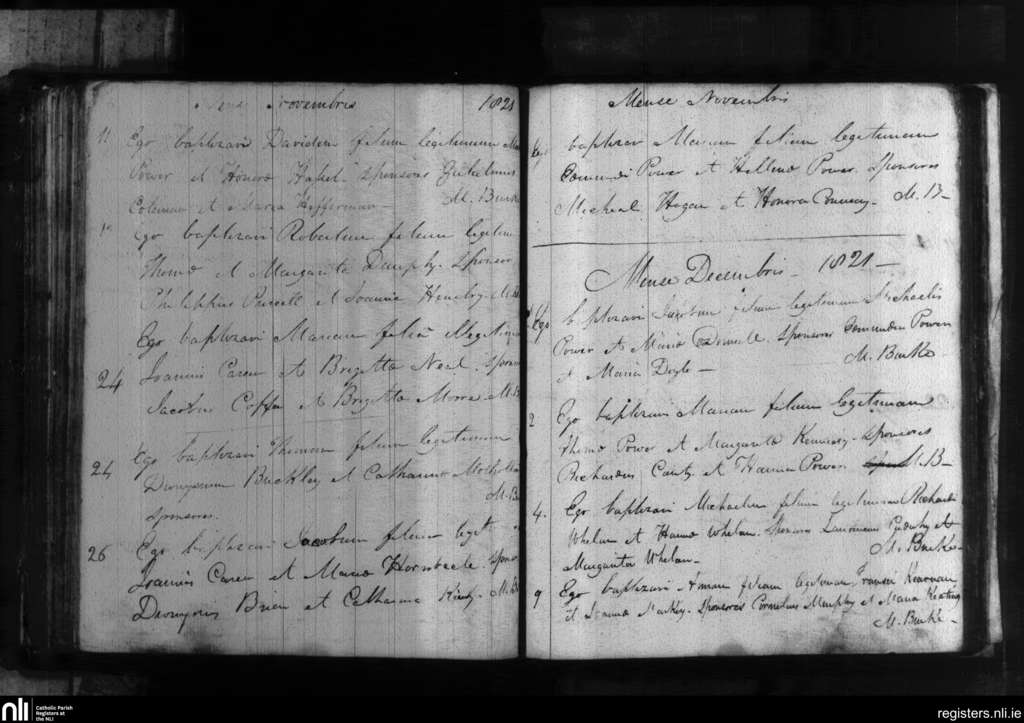 Mense Novembris 1821
11 Ego baptizavi Davidem filium legitimum
Power et Honora sponsores Gulielmus
Coleman et Maria Heffernan M. Burke
Ego baptizavi Robertum filium legitim
Thoma et Margarita Dunphy sponsor
Philippus Purcell et Joanna M. B
Ego baptizavi Mariam filia
24 Joannis Carew et Brigitta Neal. spons
Jacobus et Brigitta Moore M. B
24 Ego baptizavi Thomam filium legitimum
Dionysium Buckley et Catharina
M. Bu
sponsores.
26 Ego baptizavi Jacobum filium legit
Joannis Carew et Maria sponso
Dionysius Brien et Catharina M. B
Mense Novembris
Ego baptizav Mariam filium legitimam
Edmundi Power et Hellena Power. Sponsores
Micheal Hogan et Honora M. B-
Mense Decembris - 1821 -
Ego baptizavi Jacobum filium legitimum Michaelis
Power et Maria sponsores Edmundus Power
et Maria Doyle - M. Burke
2 Ego baptizavi Mariam filium legitimam
Thoma Power et Margarita Kennedy. Sponsores
Richardus et Hanna Power M. B-
4. Ego baptizavi Michaelem filium legitimum Richardi
Whelan et Hanna Whelan. Sponsores et
Margarita Whelan. M. Burke-
9 Ego baptizavi filiam legitimam
et Joanna Mackey. Sponsores Cornelius Murphy et Maria Keating
M. Burke -
nli
Catholic Parish
Registers at
the NLI
registers.nli.ie